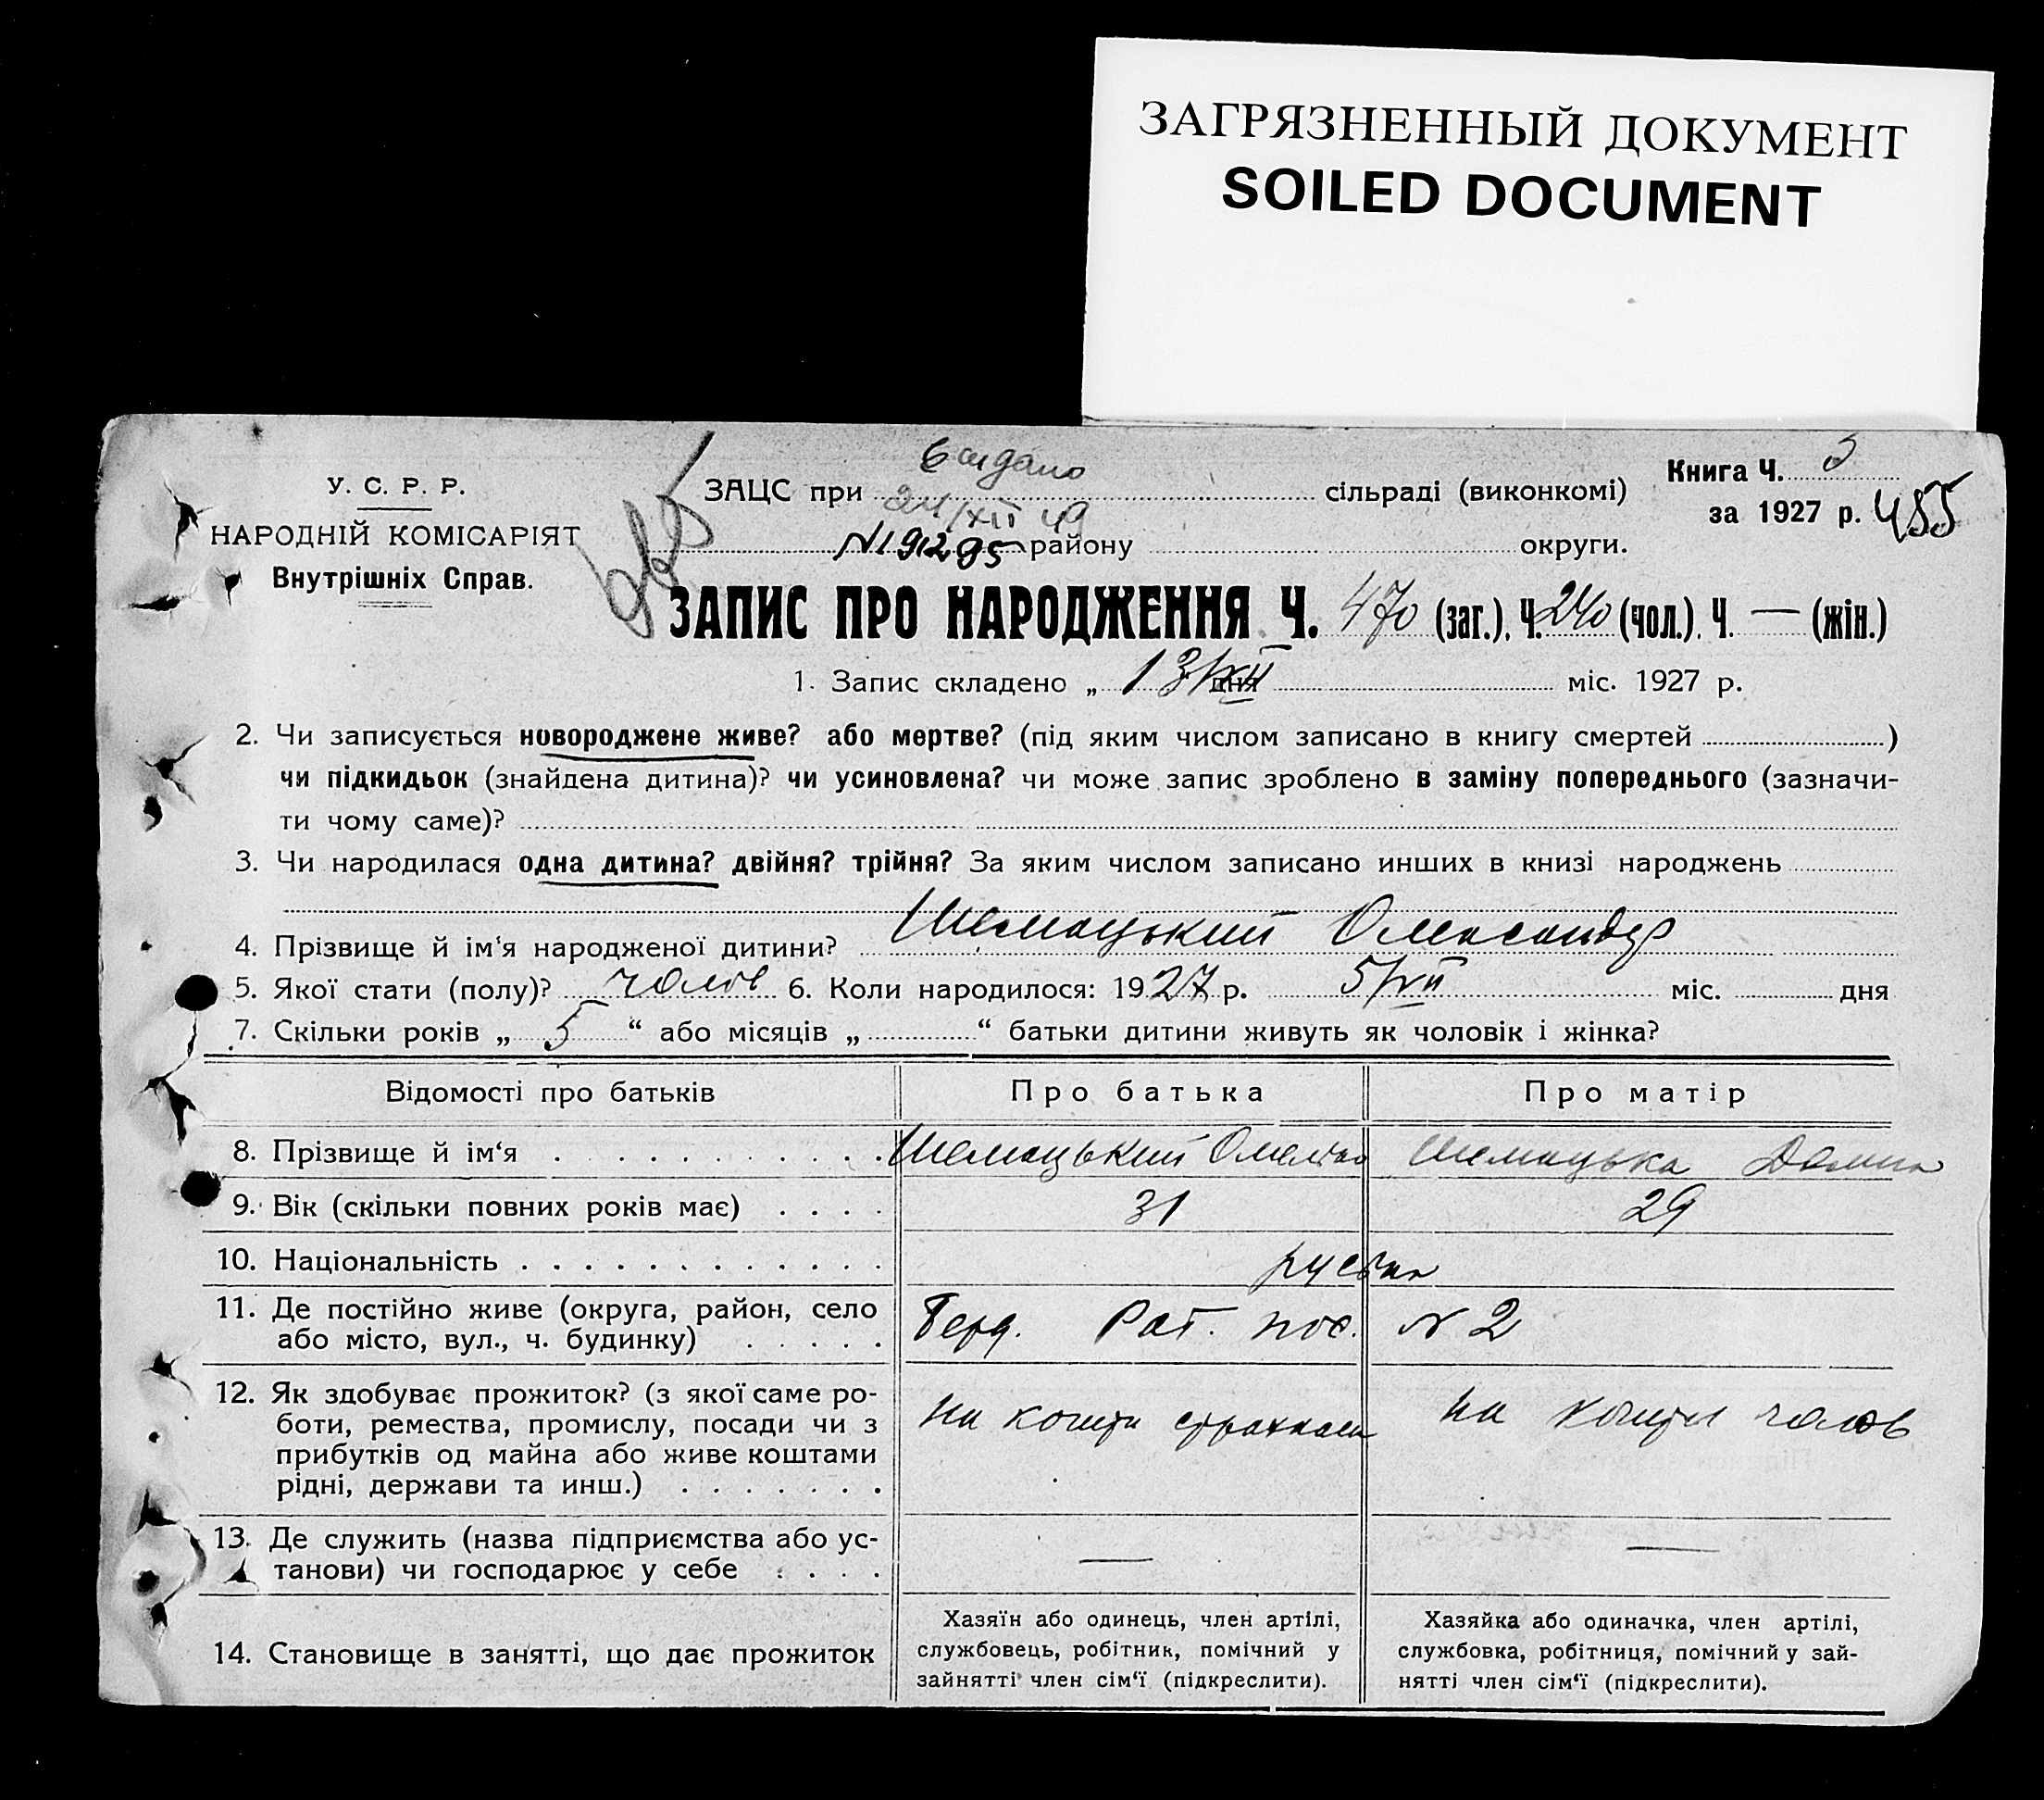 ЗАГРЯЗНЕННЫЙ ДОКУМЕНТ
SOILED DOCUMENT
У. С. Р. Р.
НАРОДНІЙ КОМІСАРІЯТ
Внутрішніх Справ.
ЗАЦС при сільраді (виконкомі)
24/XII 49
N191295 району округи.
Книга Ч. 3
за 1927 р. 455
ЗАПИС ПРО НАРОДЖЕННЯ Ч. 470 (заг.), Ч. 240 (чол.), Ч. — (жін.)
1. Запис складено „ 13/XII дня міс. 1927 р.
2. Чи записується новороджене живе? або мертве? (під яким числом записано в книгу смертей )
чи підкидьок (знайдена дитина)? чи усиновлена? чи може запис зроблено в заміну попереднього (зазначи-
ти чому саме)?
3. Чи народилася одна дитина? двійня? трійня? За яким числом записано инших в книзі народжень
4. Прізвище й ім‘я народженої дитини? Шемацький Олександр
5. Якої стати (полу)? чолов 6. Коли народилося: 1927 р. 5/XII міс. дня
7. Скільки років „ 5 “ або місяців „ “ батьки дитини живуть як чоловік і жінка?
Відомості про батьків Про батька Про матір
8. Прізвище й ім‘я Шемацький Шемацька
9. Вік (скільки повних років має) 31 29
10. Національність
11. Де постійно живе (округа, район, село
або місто, вул., ч. будинку) Берд. пос. N 2
12. Як здобуває прожиток? (з якої саме ро-
боти, ремества, промислу, посади чи з
прибутків од майна або живе коштами
рідні, держави та инш.) на кошти на кошти чолов
13. Де служить (назва підприємства або ус-
танови) чи господарює у себе — —
14. Становище в занятті, що дає прожиток
Хазяїн або одинець, член артілі,
службовець, робітник, помічний у
зайнятті член сім‘ї (підкреслити).
Хазяйка або одиначка, член артілі,
службовка, робітниця, помічний у зай-
нятті член сім‘ї (підкреслити).